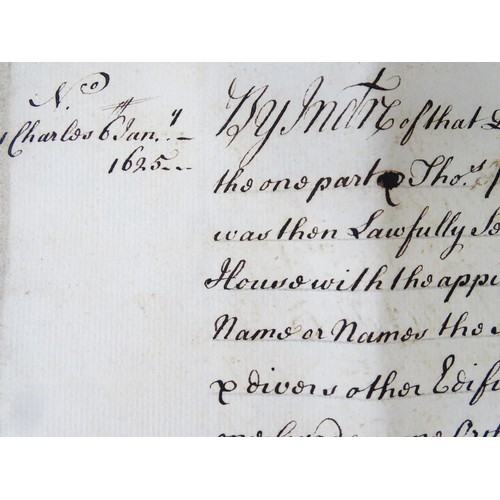 N.o
1 Charles 6th Jan.y
1625
By Indre of that
the one part & Tho.s
was then Lawfully
House with the
Name or Names the
& divers other